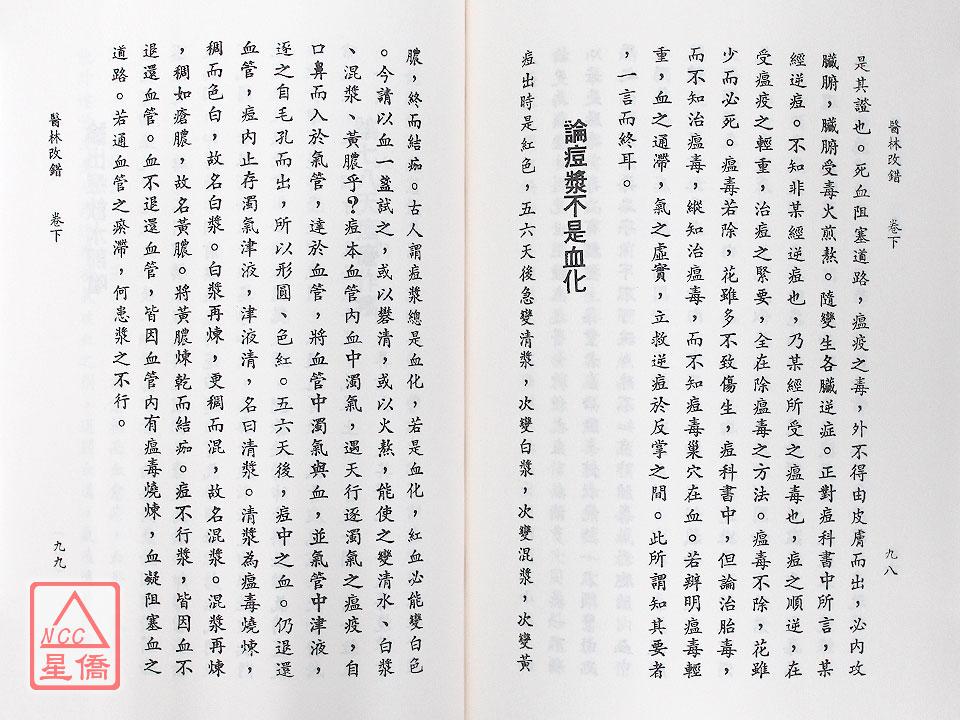 醫林改錯　卷下
九八
是其證也。死血阻塞道路，瘟疫之毒，外不得由皮膚而出，必內攻
臟腑，臟腑受毒火煎熬。隨變生各臟逆症。正對痘科書中所言，某
經逆痘。不知非某經逆痘也，乃某經所受之瘟毒也，痘之順逆，在
受瘟疫之輕重，治痘之緊要，全在除瘟毒之方法。瘟毒不除，花雖
少而必死。瘟毒若除，花雖多不致傷生，痘科書中，但論治胎毒，
而不知治瘟毒，縱知治瘟毒，而不知痘毒巢穴在血。若辨明瘟毒輕
重，血之通滯，氣之虛實，立救逆痘於反掌之間。此所謂知其要者
，一言而終耳。
論痘漿不是血化
痘出時是紅色，五六天後急變清漿，次變白漿，次變混漿，次變黃
膿，終而結痂。古人謂痘漿總是血化，若是血化，紅血必能變白色
。今請以血一盞試之，或以礬清，或以火熬，能使之變清水、白漿
、混漿、黃膿乎？痘本血管內血中濁氣，遇天行逐濁氣之瘟疫，自
口鼻而入於氣管，達於血管，將血管中濁氣與血，並氣管中津液，
逐之自毛孔而出，所以形圓、色紅。五六天後，痘中之血。仍退還
血管，痘內止存濁氣津液，津液清，名曰清漿。清漿為瘟毒燒煉，
稠而色白，故名白漿。白漿再煉，更稠而混，故名混漿。混漿再煉
，稠如瘡膿，故名黃膿。將黃膿煉乾而結痂。痘不行漿，皆因血不
退還血管。血不退還血管，皆因血管內有瘟毒燒煉，血凝阻塞血之
道路。若通血管之瘀滯，何患漿之不行。
醫林改錯　卷下
九九
NCC
星僑